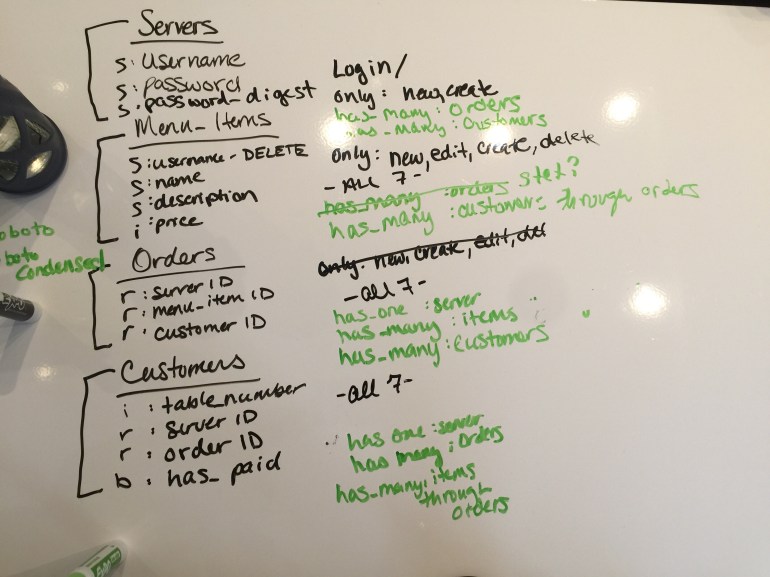 Servers
s: username
s: password
s: password_digest
Login/
only: new, create
has_many: orders
as_many: customers
Menu_Items
s: username - DELETE
s: name
s: description
i: price
only: new, edit, create, delete
- ALL 7 -
has_many :orders stet?
has_many :customers through orders
oboto
boto
Condensed
Orders
r: server ID
r: menu_item ID
r: customer ID
only: new, create, edit, del
- all 7 -
has_one :server
has_many :items
has_many :customers
Customers
i : table_number
r : server ID
r : order ID
b : has_paid
- all 7 -
has one :server
has many : orders
has_many: items
through
orders